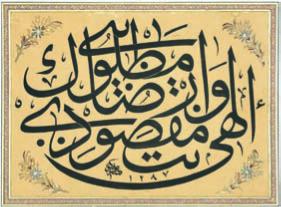 الهى انت مقصودى
ورضاك مطلوبى
١٢٩٧